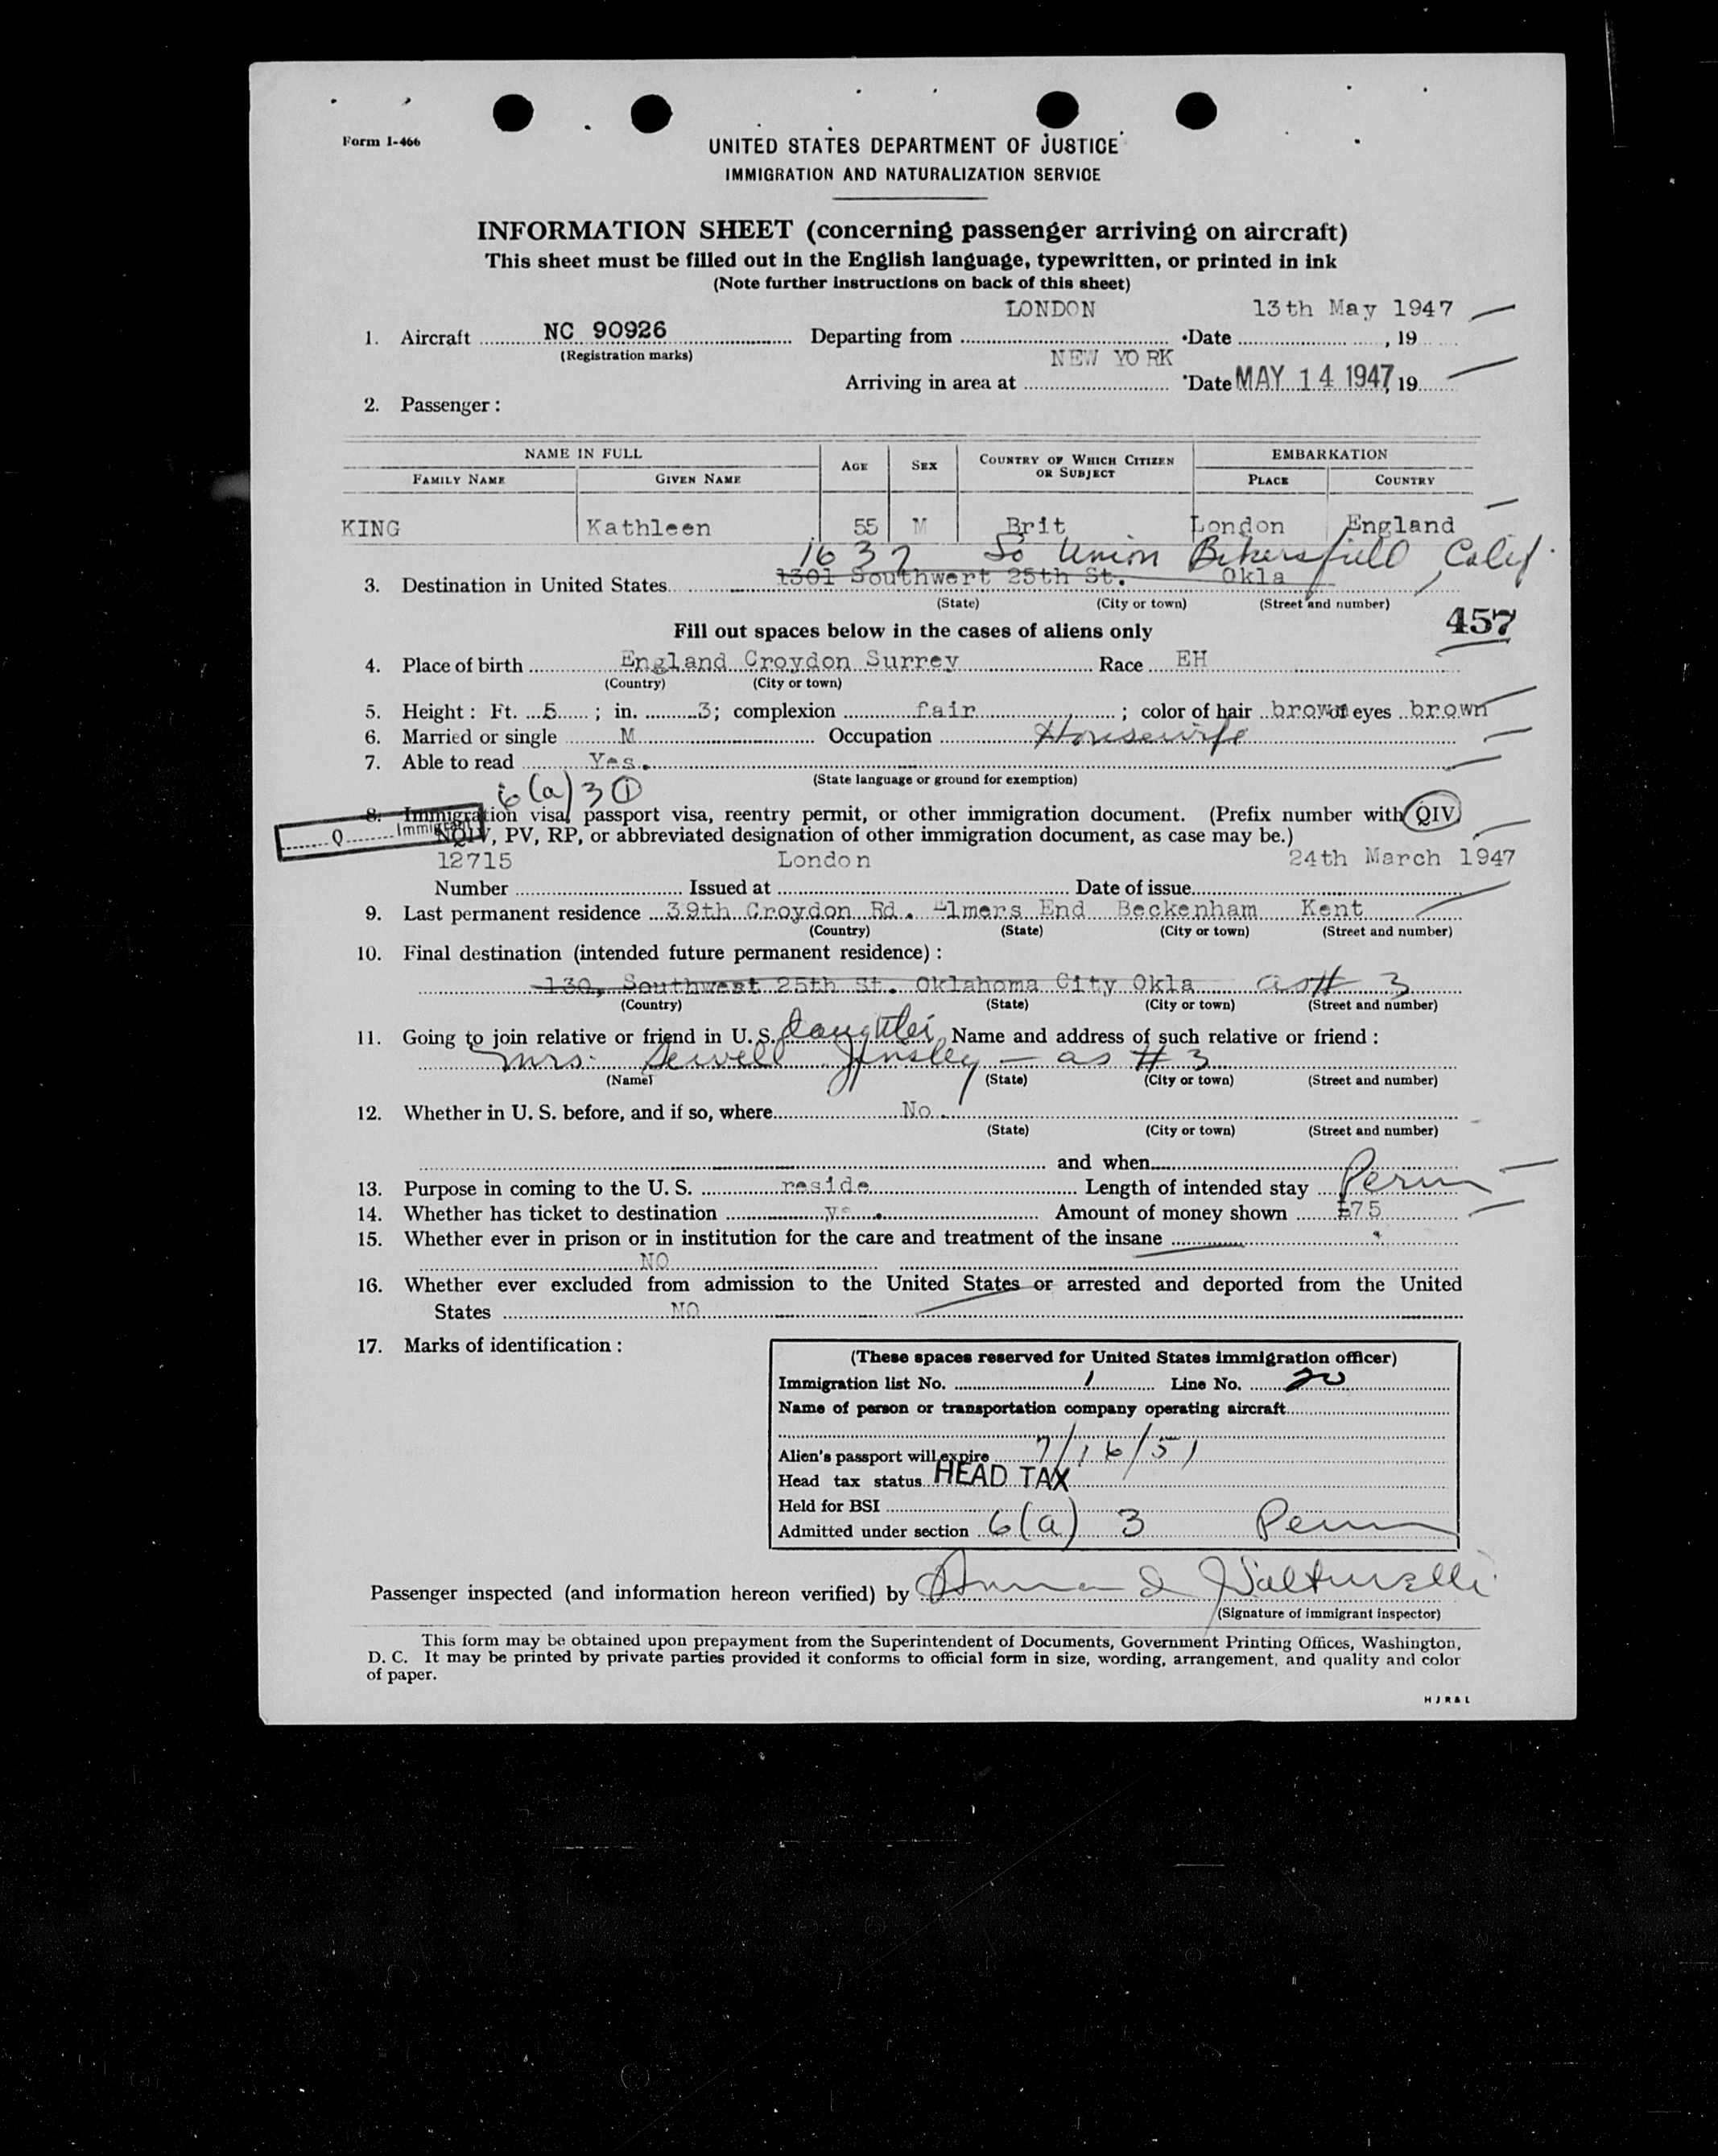 Form I-466
UNITED STATES DEPARTMENT OF JUSTICE
IMMIGRATION AND NATURALIZATION SERVICE
INFORMATION SHEET (concerning passenger arriving on aircraft)
This sheet must be filled out in the English language, typewritten, or printed in ink
(Note further instructions on back of this sheet)
LONDON 13th May 1947
1. Aircraft NC 90926 Departing from Date , 19
(Registration marks) NEW YORK
Arriving in area at Date MAY 14 1947, 19
2. Passenger:
NAME IN FULL AGE SEX COUNTRY OF WHICH CITIZEN OR SUBJECT EMBARKATION
FAMILY NAME GIVEN NAME PLACE COUNTRY
KING Kathleen 55 M Brit London England
1637 So Union Bakersfield, Calif.
3. Destination in United States 1301 Southwert 25th St. Okla
(State) (City or town) (Street and number)
Fill out spaces below in the cases of aliens only 457
4. Place of birth England Croydon Surrey Race EH
(Country) (City or town)
5. Height: Ft. 5; in. 3; complexion fair; color of hair brown eyes brown
6. Married or single M Occupation Housewife
7. Able to read Yes.
(State language or ground for exemption)
6(a)3 ①
8. Immigration visa, passport visa, reentry permit, or other immigration document. (Prefix number with QIV
Q Immigrant
NQIV, PV, RP, or abbreviated designation of other immigration document, as case may be.)
12715 London 24th March 1947
Number Issued at Date of issue
9. Last permanent residence 39th Croydon Rd. Elmers End Beckenham Kent
(Country) (State) (City or town) (Street and number)
10. Final destination (intended future permanent residence):
130, Southwest 25th St. Oklahoma City Okla as # 3
(Country) (State) (City or town) (Street and number)
11. Going to join relative or friend in U. S. daughter Name and address of such relative or friend:
Mrs. Sewell — as # 3
(Name) (State) (City or town) (Street and number)
12. Whether in U. S. before, and if so, where No.
(State) (City or town) (Street and number)
and when
13. Purpose in coming to the U. S. reside Length of intended stay Perm
14. Whether has ticket to destination Amount of money shown £75
15. Whether ever in prison or in institution for the care and treatment of the insane
NO
16. Whether ever excluded from admission to the United States or arrested and deported from the United
States NO
17. Marks of identification:
(These spaces reserved for United States immigration officer)
Immigration list No. 1 Line No. 20
Name of person or transportation company operating aircraft
Alien's passport will expire 7/16/51
Head tax status HEAD TAX
Held for BSI
Admitted under section 6(a) 3 Perm
Passenger inspected (and information hereon verified) by
(Signature of immigrant inspector)
This form may be obtained upon prepayment from the Superintendent of Documents, Government Printing Offices, Washington,
D. C. It may be printed by private parties provided it conforms to official form in size, wording, arrangement, and quality and color
of paper.
H J R & L